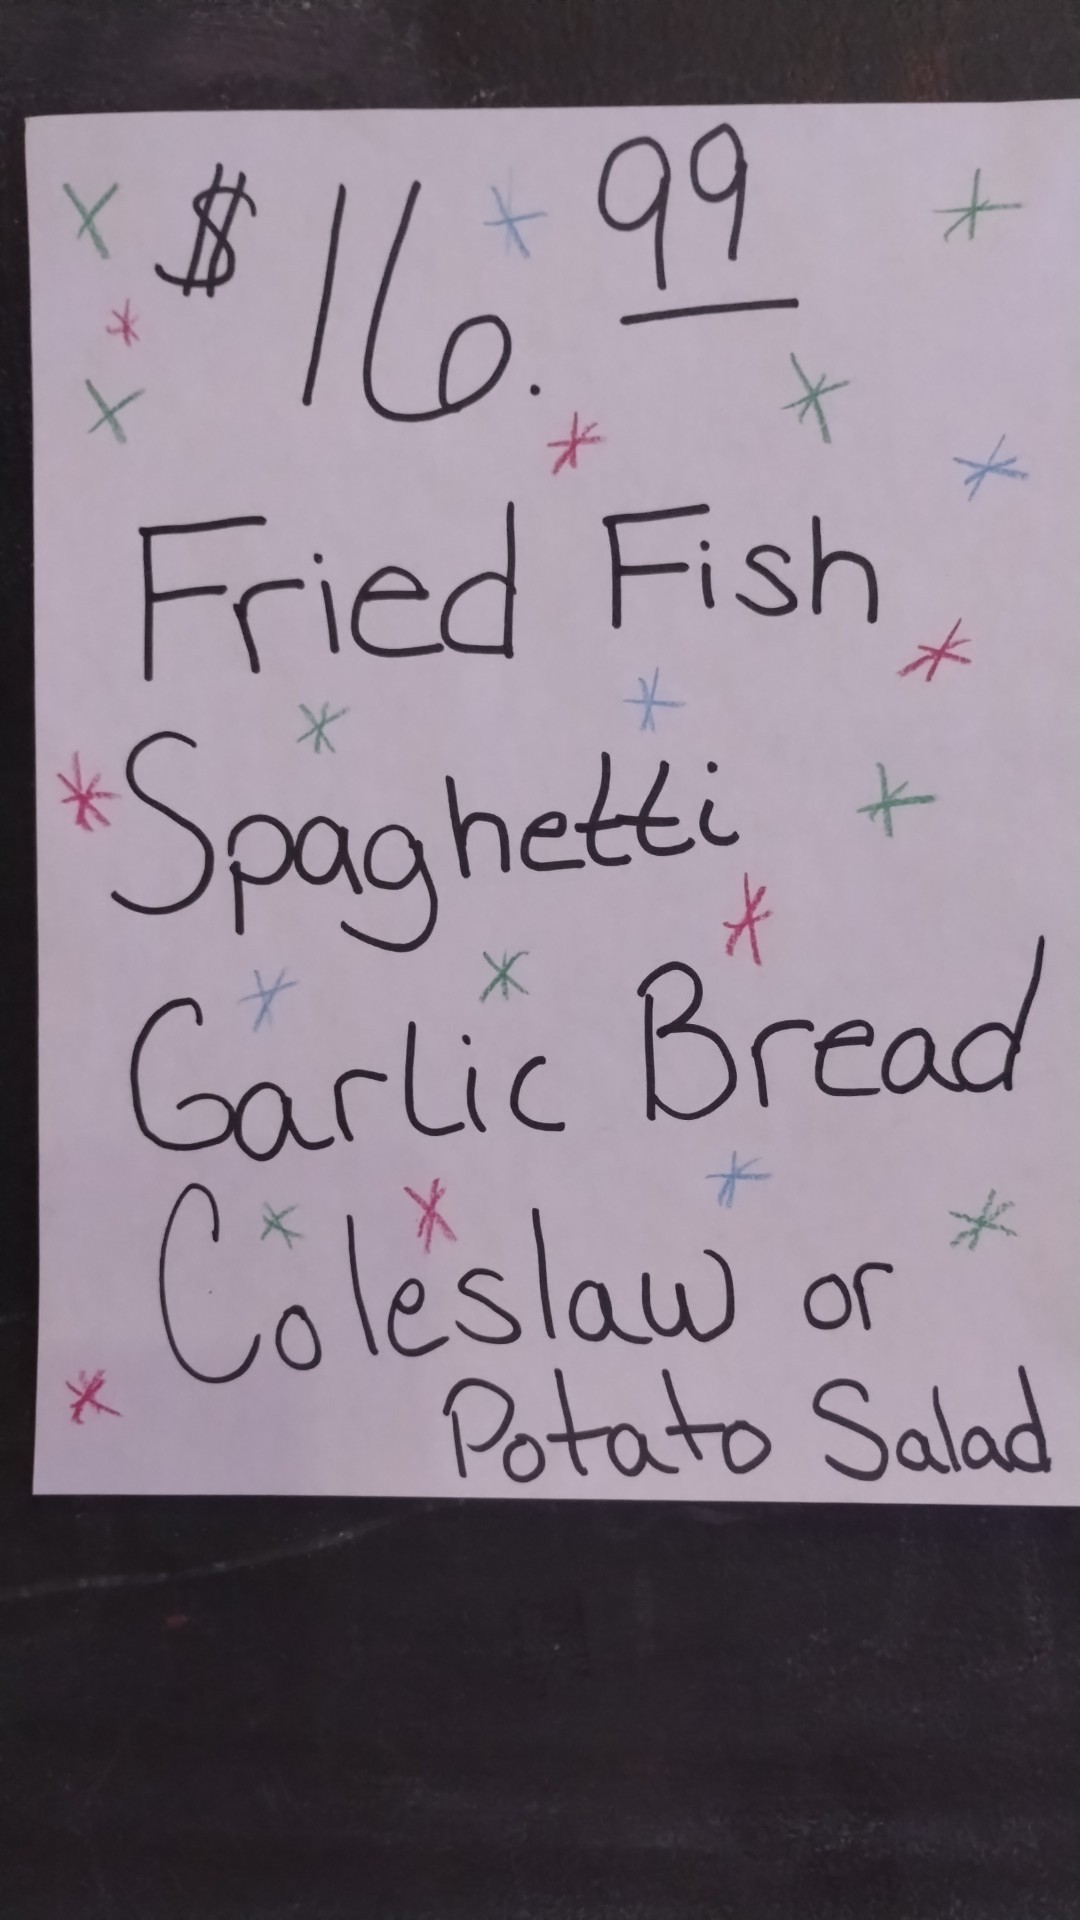 $16.99
Fried Fish
Spaghetti
Garlic Bread
Coleslaw or
Potato Salad